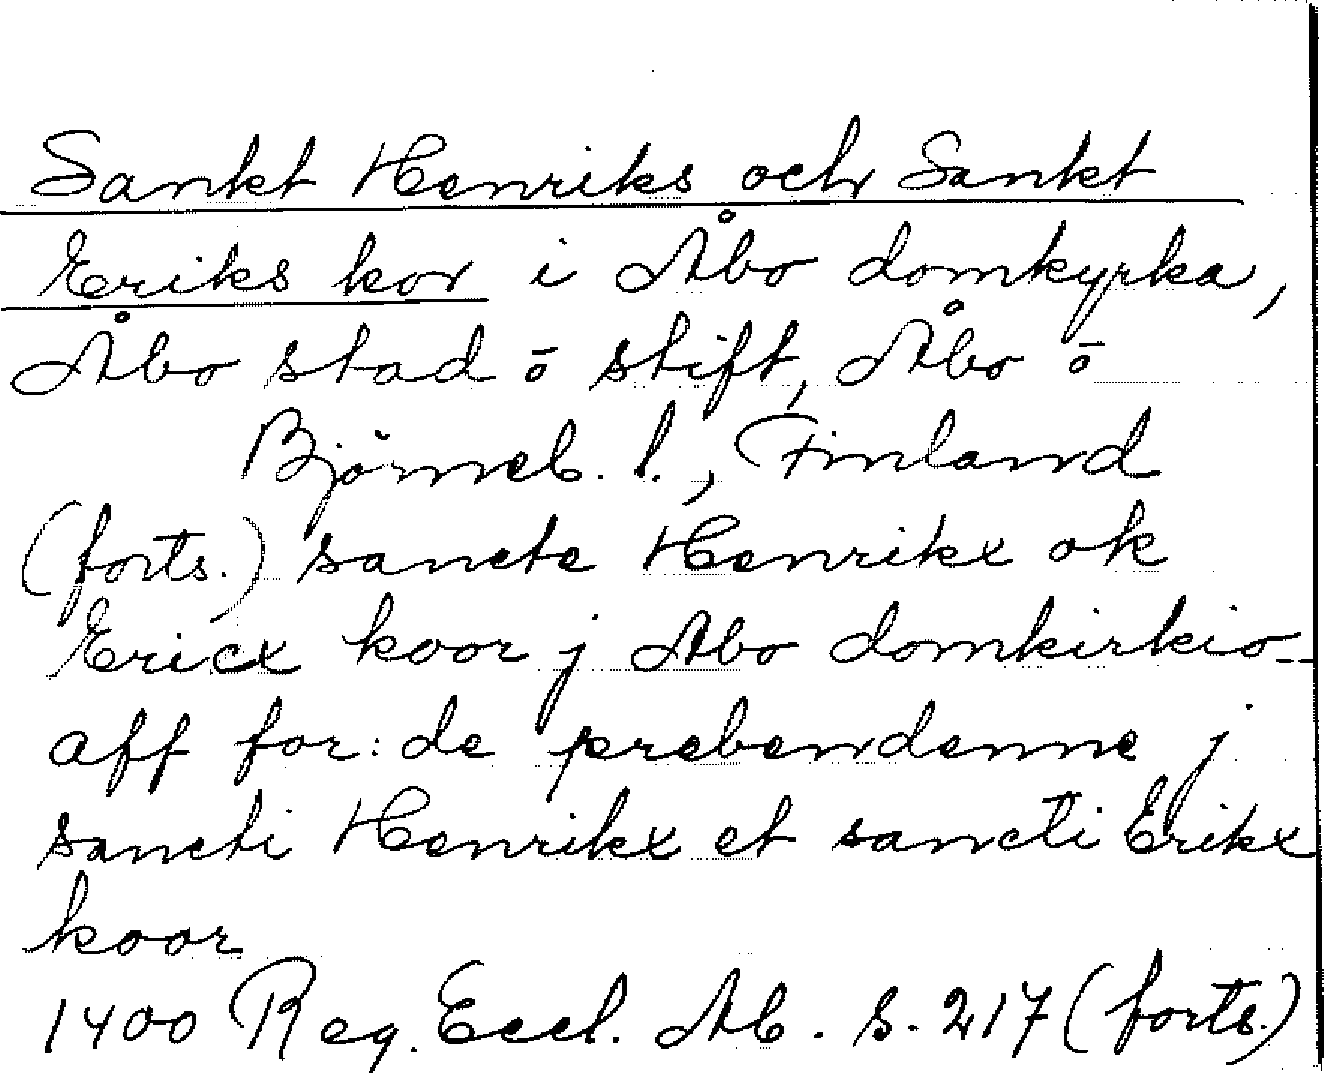 Sankt Henriks och Sankt
Eriks kor i Åbo domkyrka,
Åbo stad o stift, Åbo o
Björneb. l., Finland
(forts.) sancte Henrikx ok
Ericx koor j Abo domkirkio--
aff for:de prebendenne j
sancti Henrikx et sancti Erikx
koor
1400 Reg. Eccl. Ab. s. 217 (forts.)